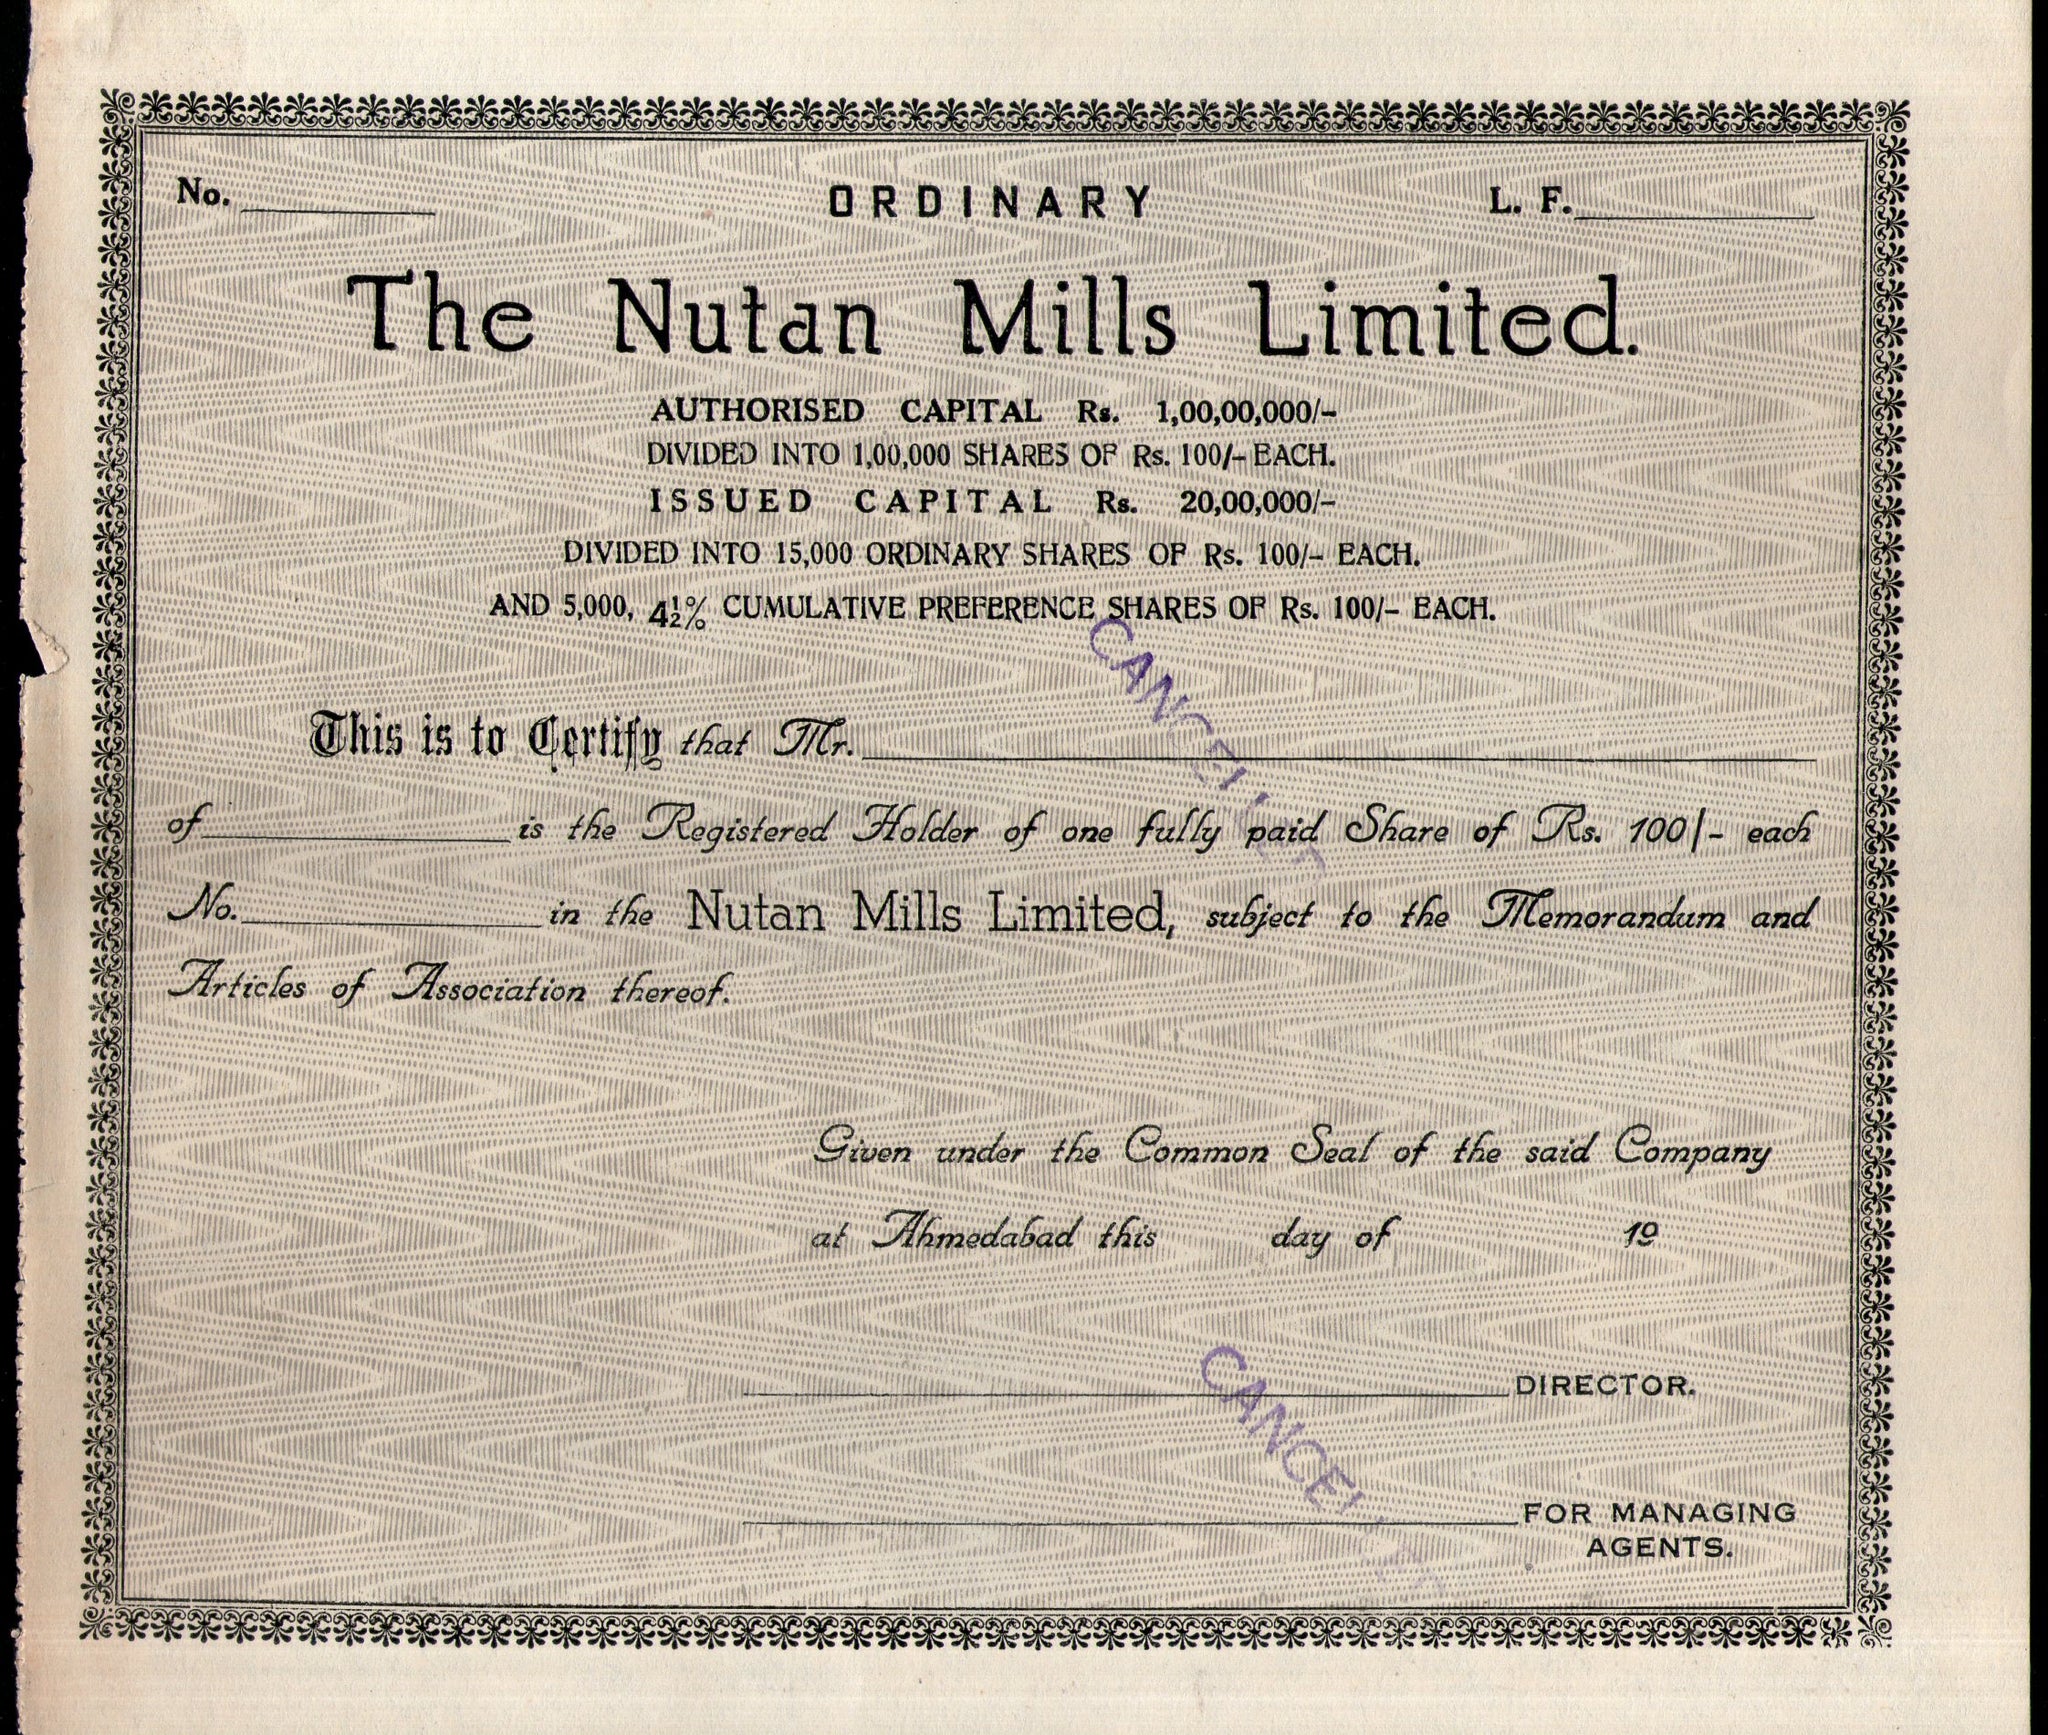 No.
ORDINARY
L. F.
The Nutan Mills Limited.
AUTHORISED CAPITAL Rs. 1,00,00,000/-
DIVIDED INTO 1,00,000 SHARES OF Rs. 100/- EACH.
ISSUED CAPITAL Rs. 20,00,000/-
DIVIDED INTO 15,000 ORDINARY SHARES OF Rs. 100/- EACH.
AND 5,000, 4½% CUMULATIVE PREFERENCE SHARES OF Rs. 100/- EACH.
CANCELLED
This is to Certify that Mr.
of is the Registered Holder of one fully paid Share of Rs. 100/- each
No. in the Nutan Mills Limited, subject to the Memorandum and
Articles of Association thereof.
Given under the Common Seal of the said Company
at Ahmedabad this day of 19
DIRECTOR.
CANCELLED
FOR MANAGING
AGENTS.